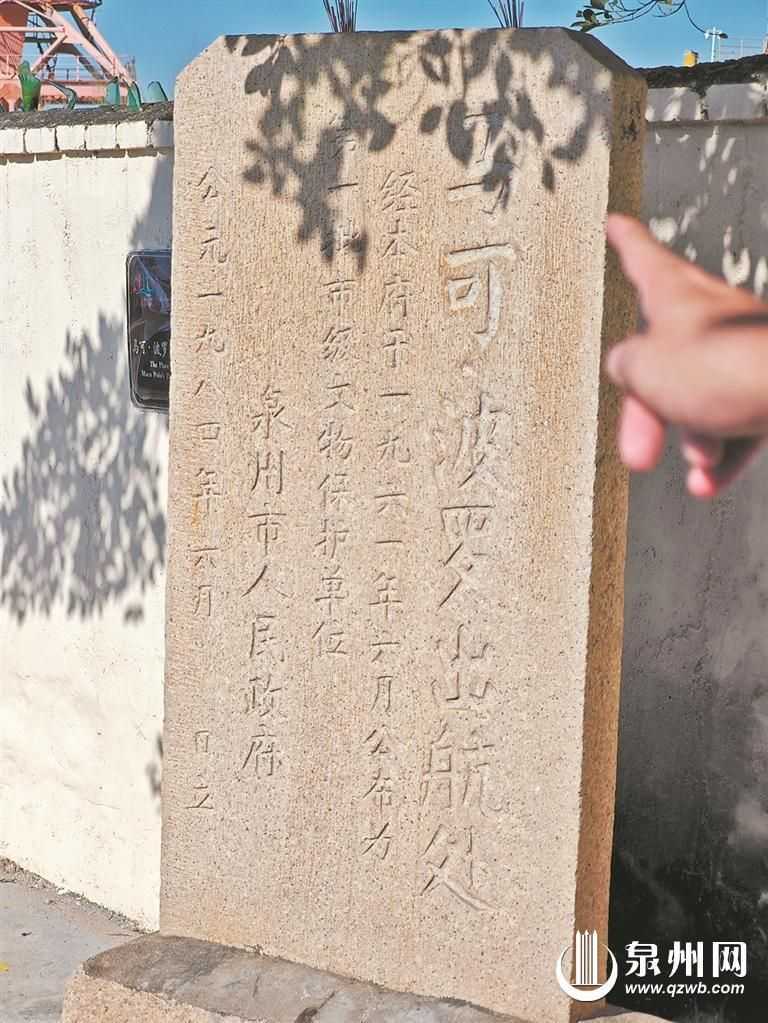 马可·波罗出航处
经本府于一九六一年六月公布为
第一批市级文物保护单位
泉州市人民政府
公元一九八四年六月 日立
马可·波罗
The Place
Marco Polo's
泉州网
www.qzwb.com